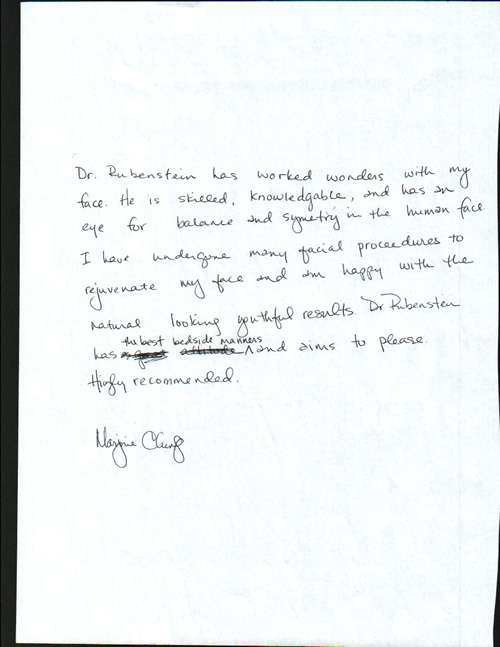 Dr. Rubenstein has worked wonders with my
face. He is skilled, knowledgable, and has an
eye for balance and symetry in the human face.
I have undergone many facial proceedures to
rejuvenate my face and am happy with the
natural looking youthful results. Dr Rubensten
the best bedside manners
has and aims to please.
Higly recommended.